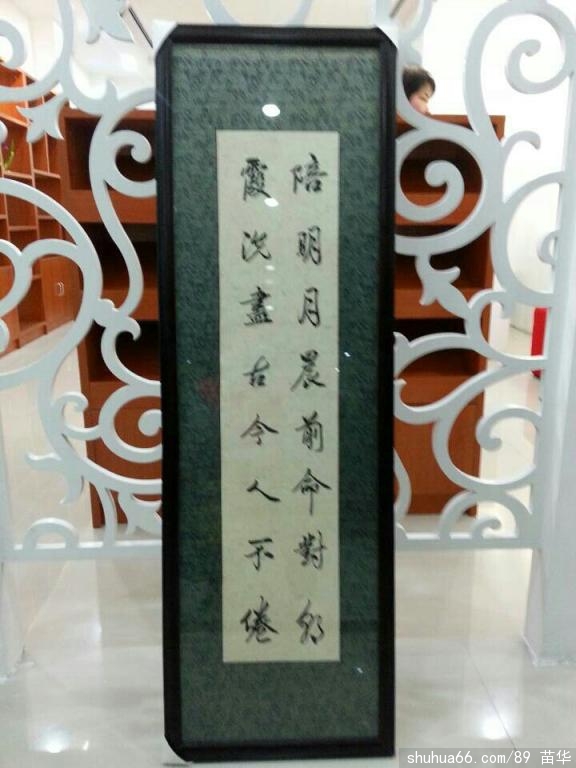 陪明月晨前命對朝
霞洗盡古今人不倦
shuhua66.com/89 苗华